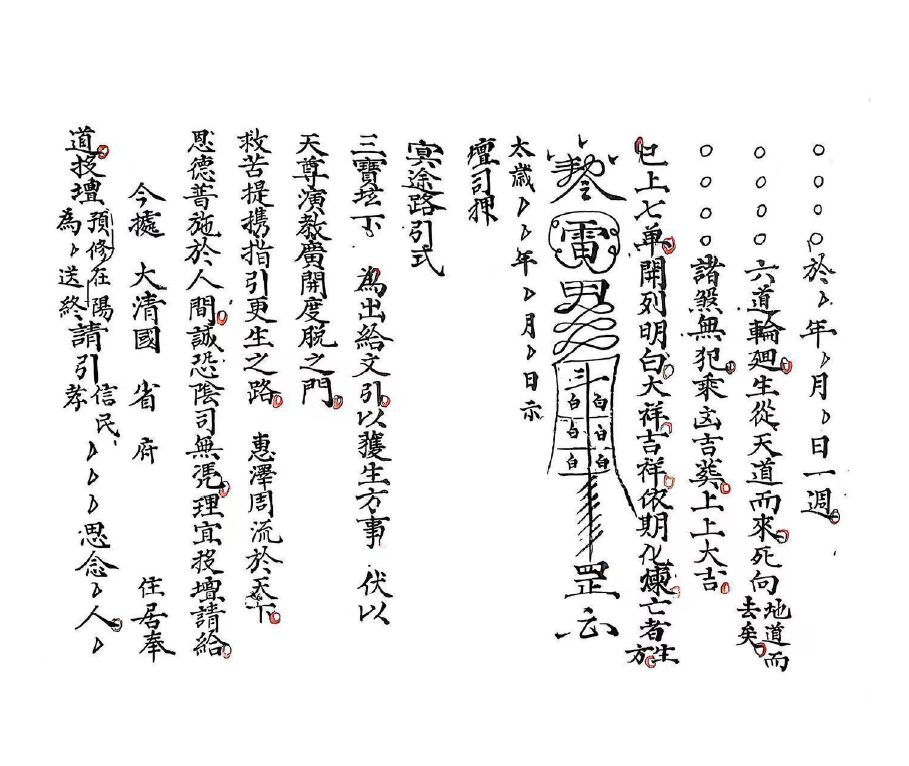 ○○○○於々年々月々日一週
○○○○六道輪廻生從天道而來死向地道而去矣
○○○○諸煞無犯乘凶吉葬上上大吉
已上七单開列明白大祥吉祥依期化煉亡者生方
雷
白白
白白
白白
罡
太歲々々年々月々日示
壇司押
寞途路引式
三寳坛下 為出給文引以獲生方事 伏以
天尊演教廣開度脱之門
救苦提携指引更生之路 惠澤周流於天下
恩德普施於人間誠恐陰司無凴理宜投壇請給
今據 大清國 省 府 住居奉
道投壇預修在陽為々送終請引信民孝々々々思念々人々